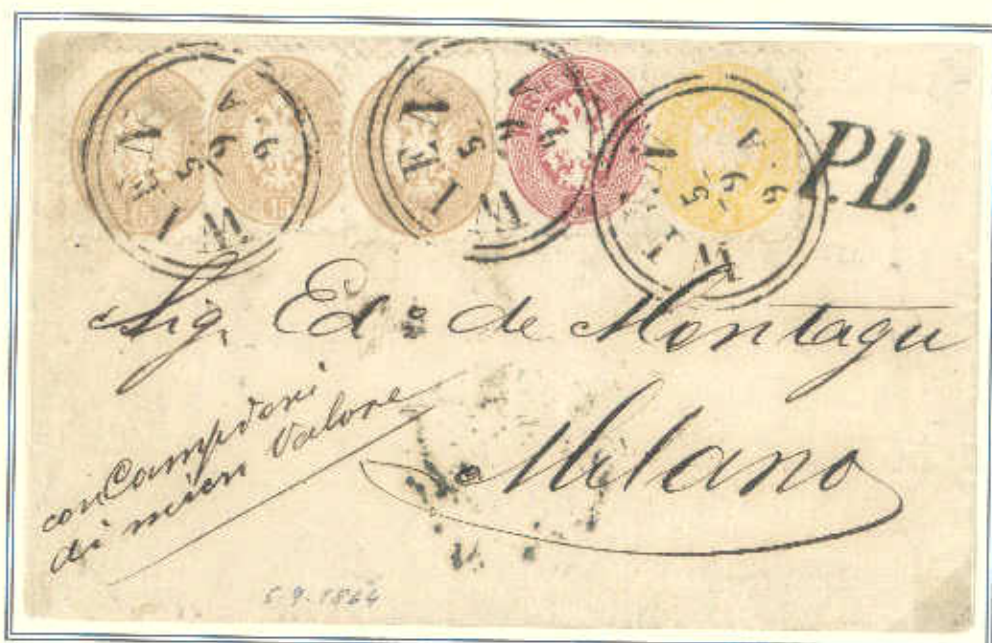 WIEN
5 9 6 A
WIEN
5 9 6 A
WIEN
5 9 6 A
15
15
P.D.
Sig. Ed.º de Montagu
Milano
con Campioni
di niun Valore
5.9.1864